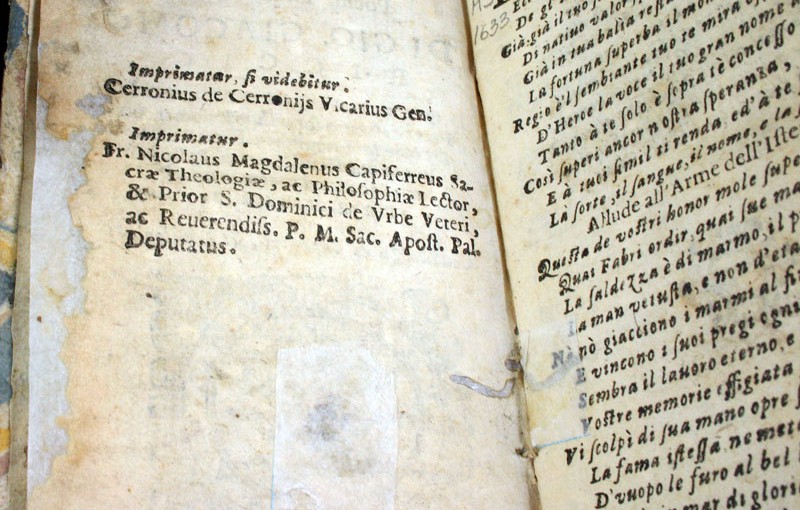 Imprimatur, si videbitur.
Cerronius de Cerronijs Vicarius Gen.
Imprimatur.
Fr. Nicolaus Magdalenus Capiferreus Sa-
cræ Theologiæ, ac Philosophiæ Lector,
& Prior S. Dominici de Vrbe Veteri,
ac Reverendiss. P. M. Sac. Apost. Pal.
Deputatus.
1633
De gl
Già già il tuo
Di natiuo valor,
Già in tua balia rest
La fortuna superba il mon
Regio è'l sembiante tuo te mira o
D'Heroe la voce il tuo gran nome a
Tanto à te solo è sopra tè concesso
Così superi ancor nostra speranza,
E à tuoi simil ti renda, ed'à te
La sorte, il sangue, il nome, e la
Allude all'Arme dell'Iste
Questa de vostri honor mole supe
Quai Fabri ordir, quai sue ma
La saldezza è di marmo, il p
La man vetusta, e non d'eta
Nò nò giacciono i marmi al fi
E vincono i suoi pregi ogni
Sembra il lauoro eterno, e
Vostre memorie effigiata
Vi scolpì di sua mano opre
La fama istessa, ne meta
D'vuopo le furo al bel
in mar di glori